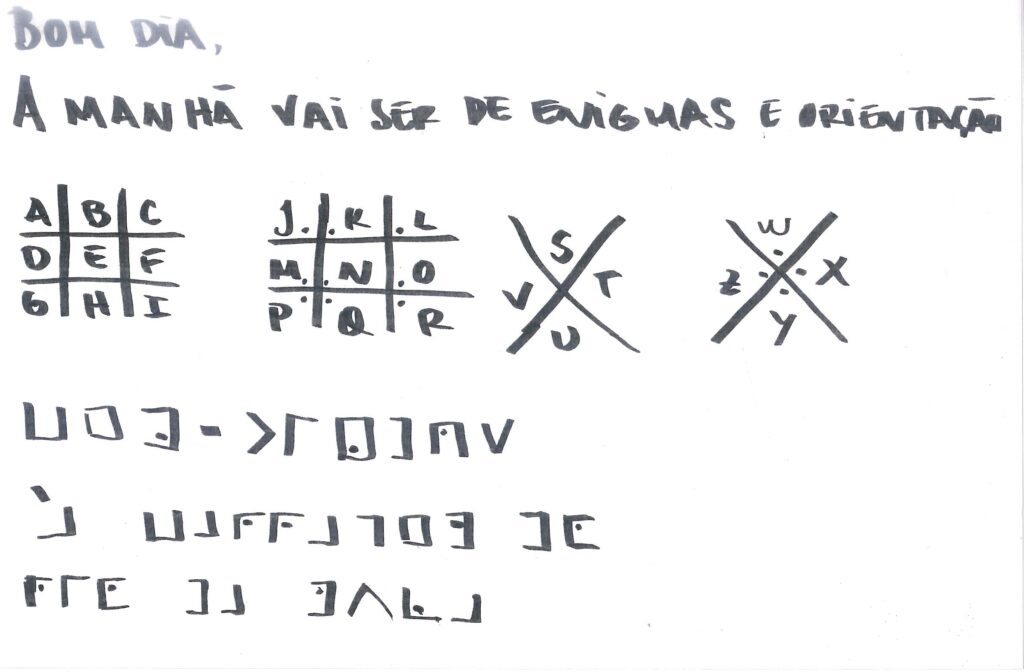 BOM DIA,
A MANHÃ VAI SER DE ENIGMAS E ORIENTAÇÃO
A B C
D E F
G H I
J K L
M N O
P Q R
S
V T
U
W
Z X
Y